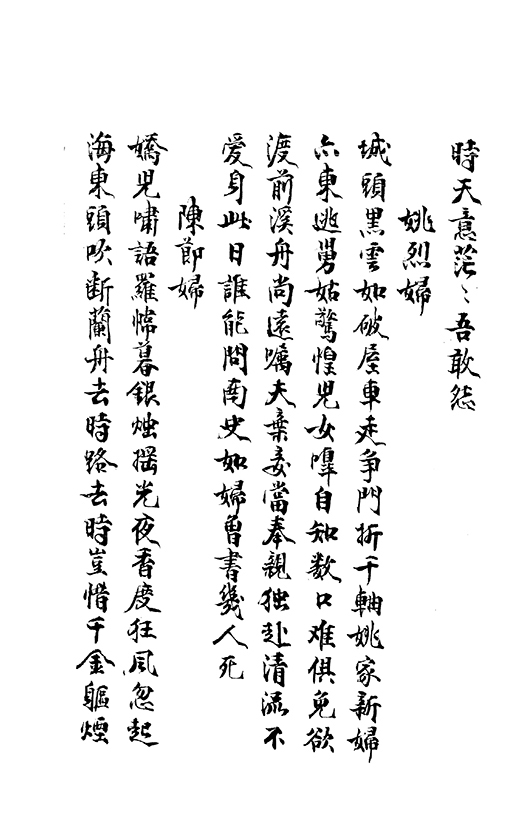 時天意茫〻吾敢怨
姚烈婦
城頭黑雲如破屋車走争門折千軸姚家新婦
亦東逃舅姑驚惶児女嘷自知数口难俱免欲
渡前溪舟尚遠嘱夫棄妾當奉親独赴清流不
愛身此日誰能問南史如婦曽書幾人死
陳節婦
嬌児嘯語羅幃暮銀燭揺光夜香度狂風忽起
海東頭吹断蘭舟去時路去時豈惜千金軀煙